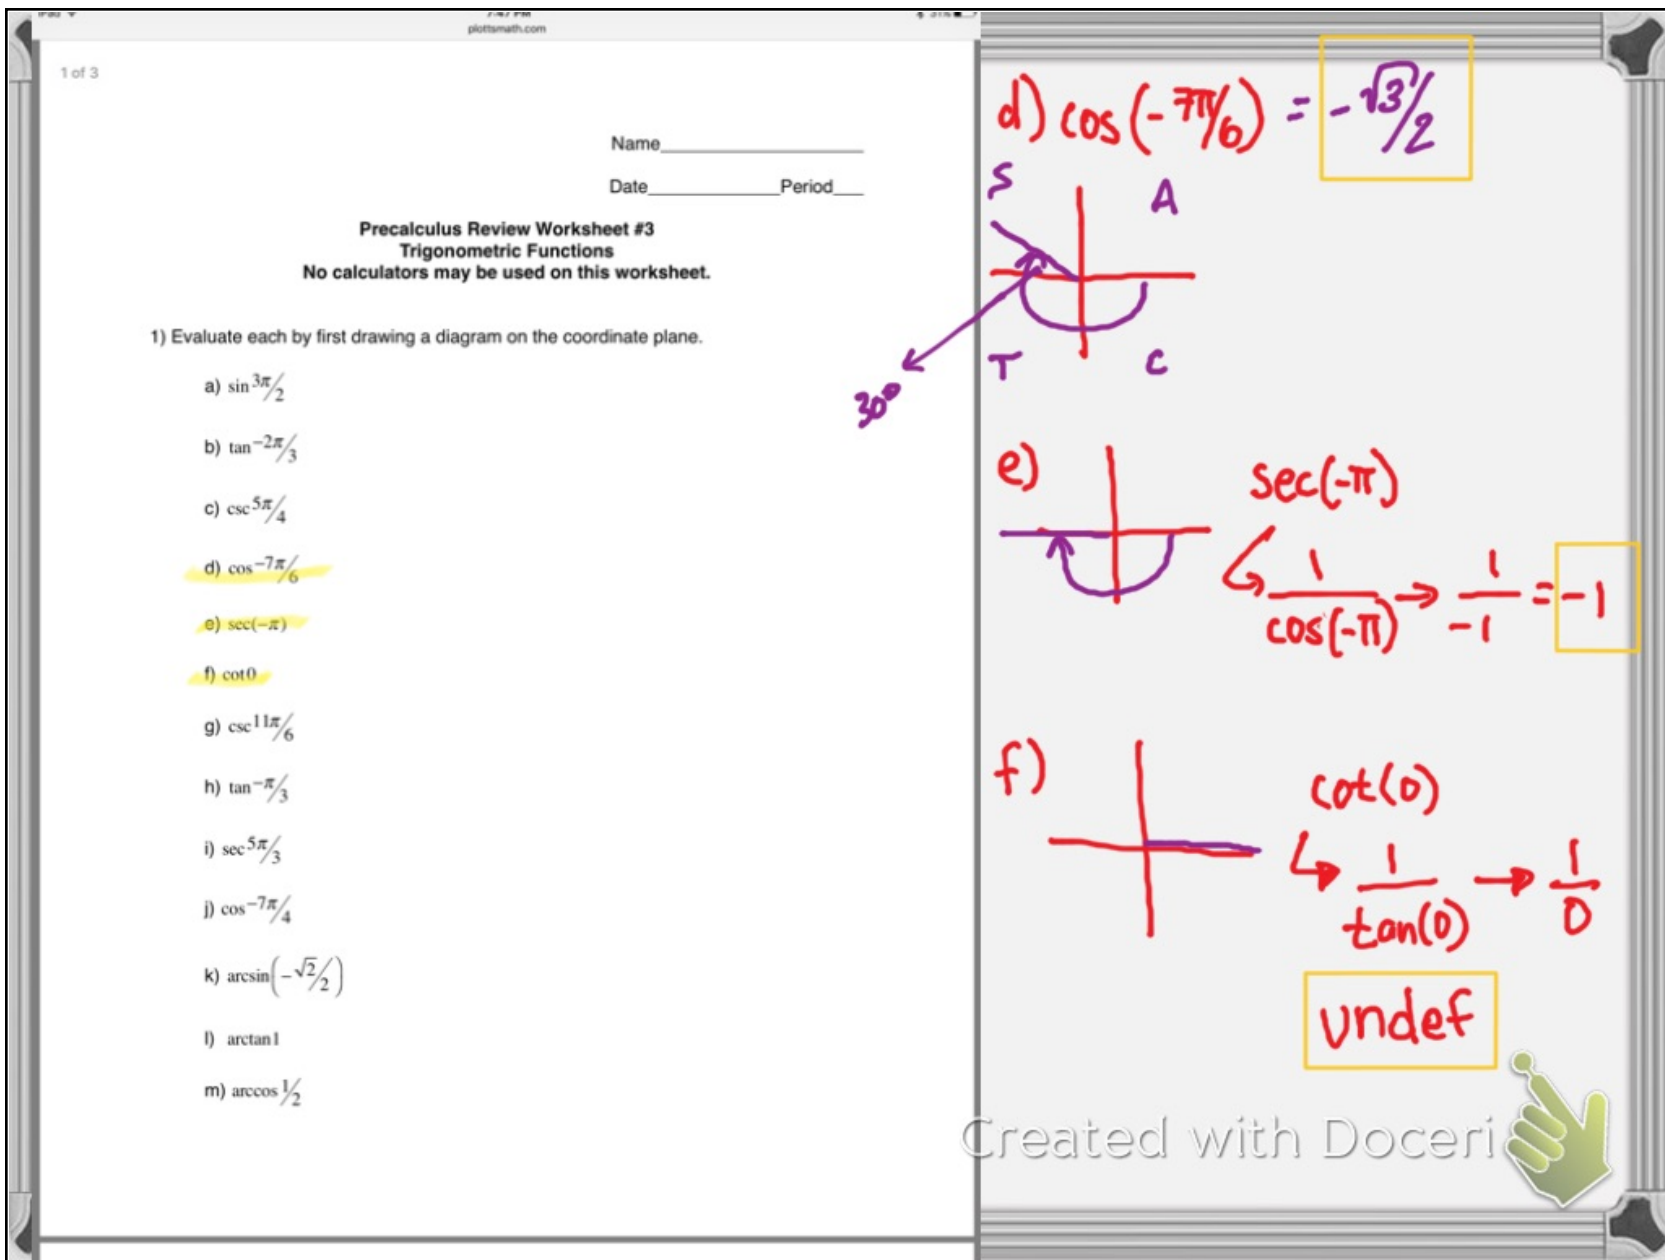 7:47 PM
plottsmath.com
1 of 3
Name
Date Period
Precalculus Review Worksheet #3
Trigonometric Functions
No calculators may be used on this worksheet.
1) Evaluate each by first drawing a diagram on the coordinate plane.
a) sin 3π/2
b) tan −2π/3
c) csc 5π/4
d) cos −7π/6
e) sec(−π)
f) cot 0
g) csc 11π/6
h) tan −π/3
i) sec 5π/3
j) cos −7π/4
k) arcsin(−√2/2)
l) arctan 1
m) arccos 1/2
d) cos(-7π/6) = -√3/2
S A
T C
30°
e) sec(-π)
1/cos(-π) → 1/-1 = -1
f) cot(0)
1/tan(0) → 1/0
undef
Created with Doceri